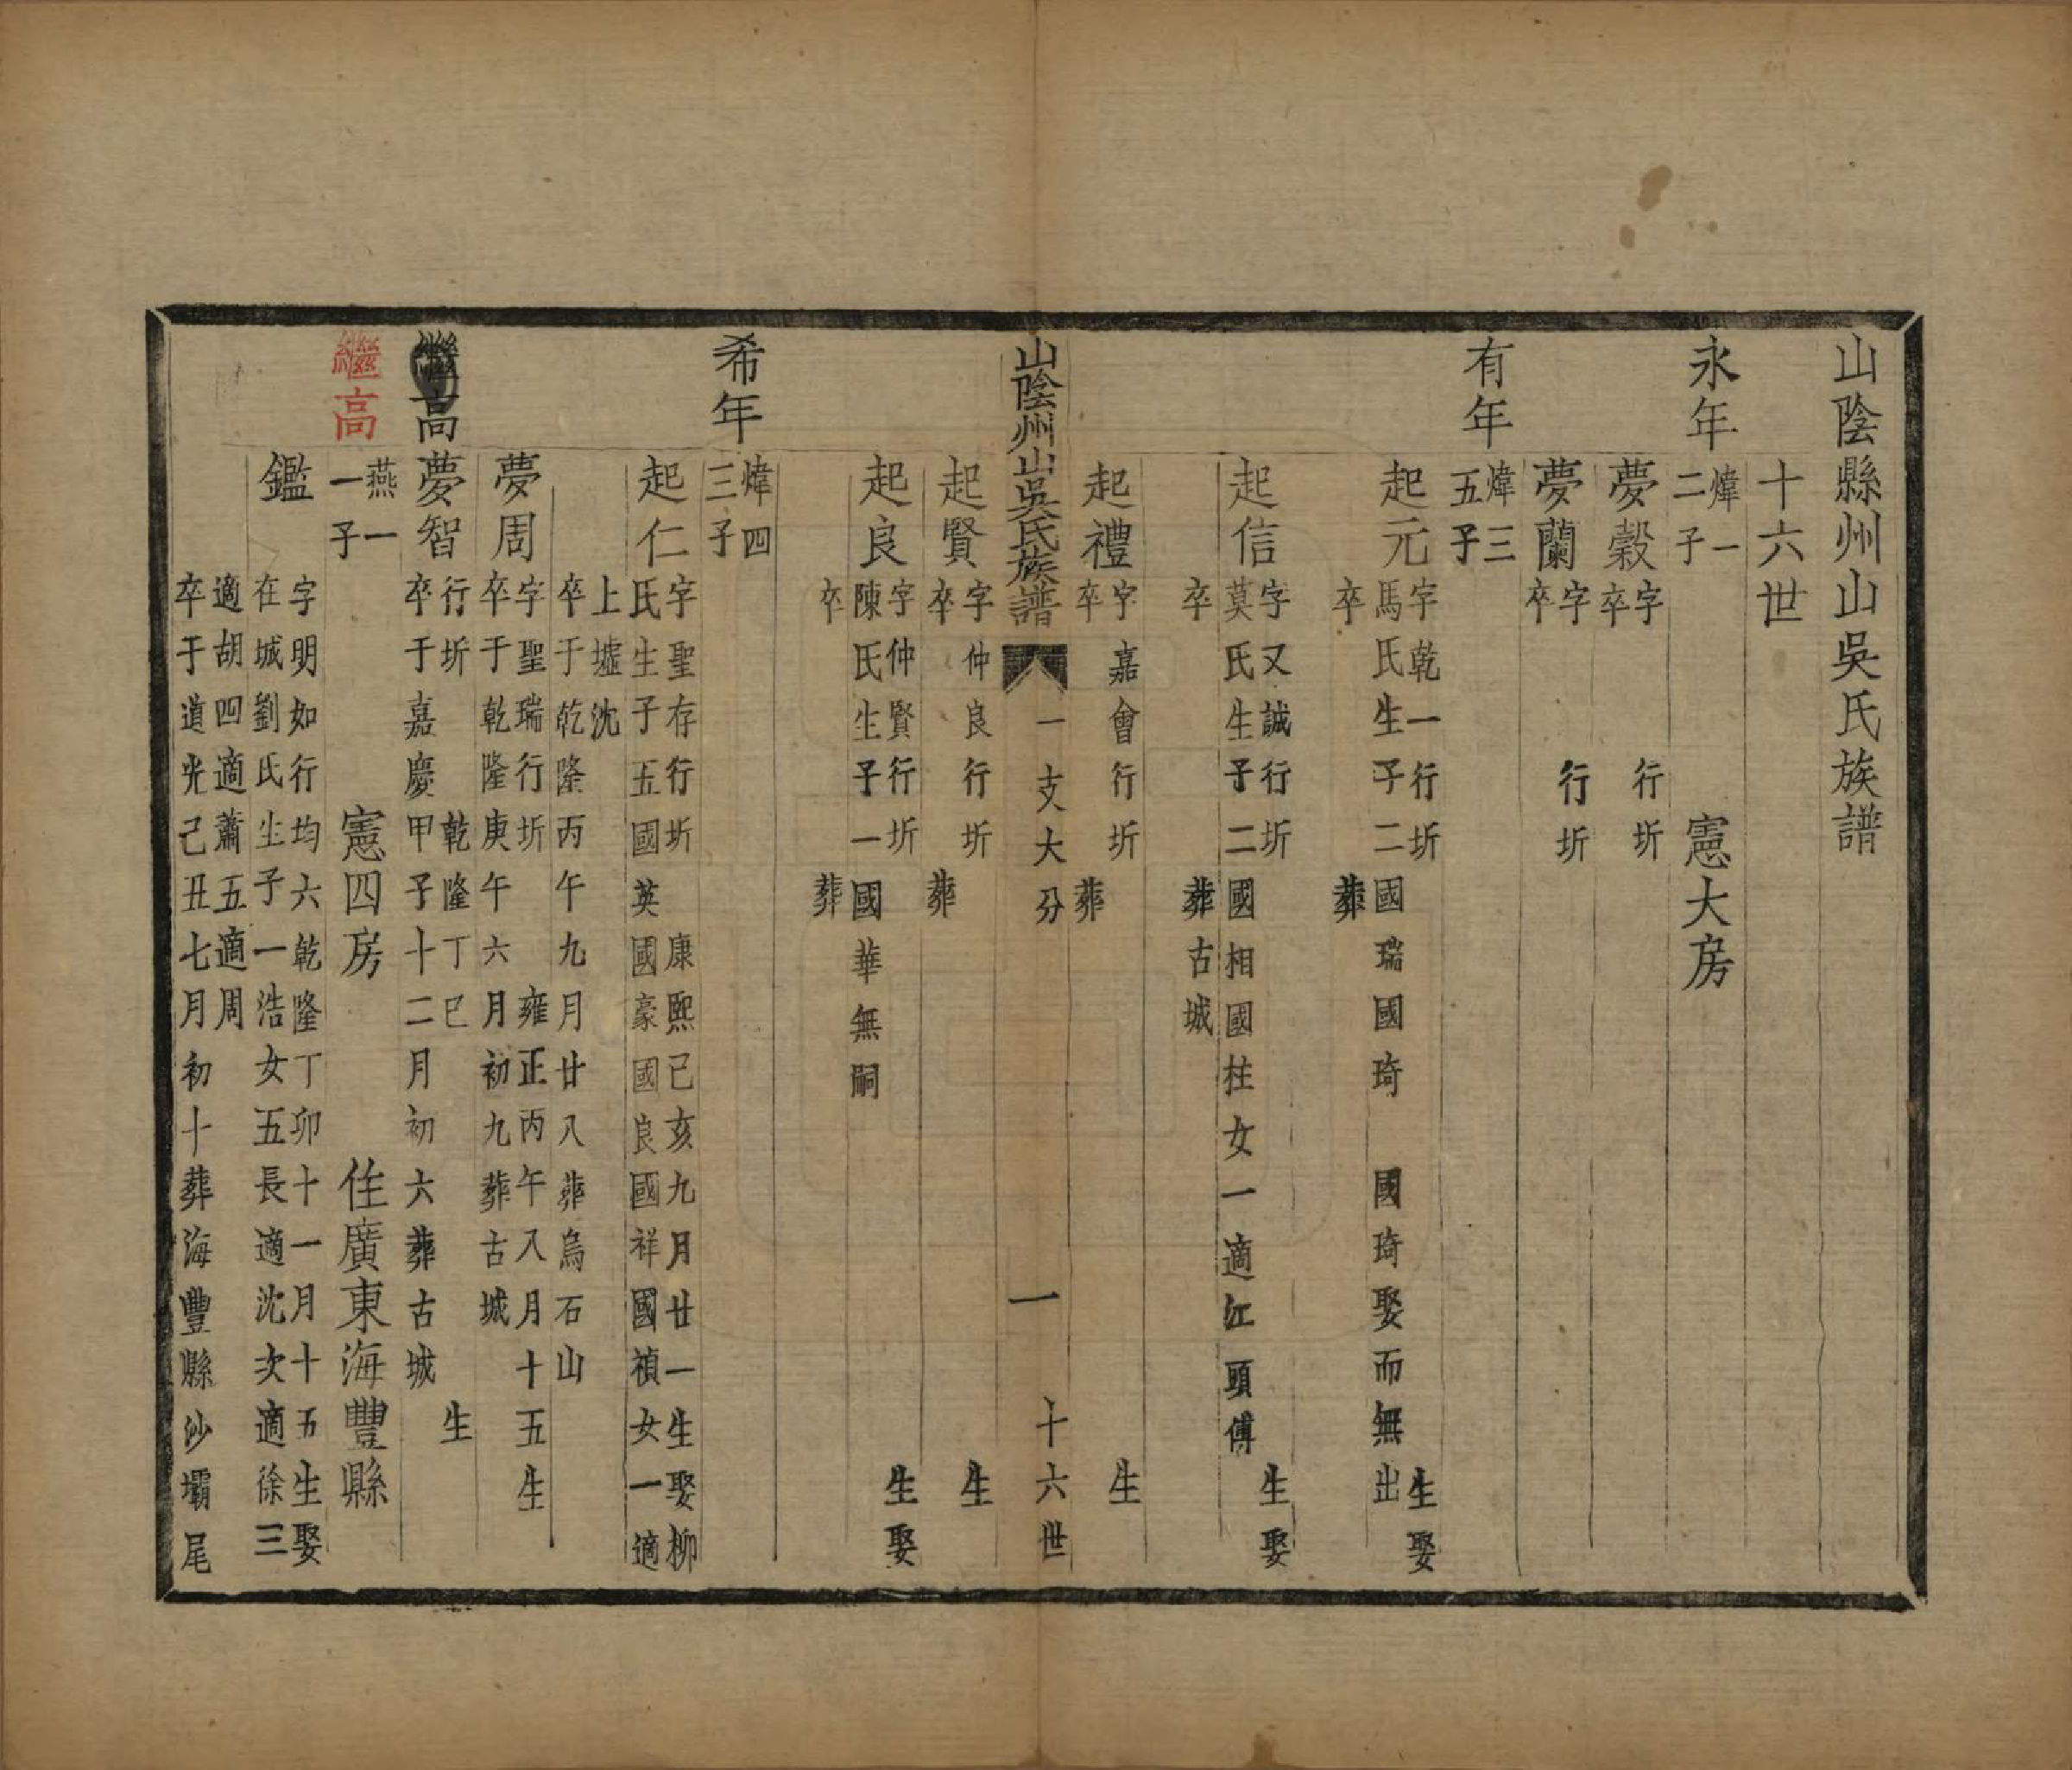 山陰縣州山吳氏族譜
十六世
憲大房
永年
煒一
二子
夢穀
字 行圻
卒
夢蘭
字 行圻
卒
有年
煒三
五子
起元
字乾一行圻 生娶
馬氏生子二國瑞國琦 國琦娶而無出
卒 葬
起信
字又誠行圻 生娶
莫氏生子二國相國柱女一適江頭傅
卒 葬古城
起禮
字嘉會行圻 生
卒 葬
山陰州山吳氏族譜 一支大分 一 十六世
起賢
字仲良行圻 生
卒 葬
起良
字仲賢行圻 生娶
陳氏生子一國華無嗣
卒 葬
希年
煒四
三子
起仁
字聖存行圻 康熙己亥九月廿一生娶柳
氏生子五國英國豪國良國祥國禎女一適
上墟沈
卒于乾隆丙午九月廿八葬烏石山
夢周
字聖瑞行圻 雍正丙午八月十五生
卒于乾隆庚午六月初九葬古城
繼高
夢智
行圻 乾隆丁巳 生
卒于嘉慶甲子十二月初六葬古城
憲四房 住廣東海豐縣
繼高
燕一
一子
鑑
字明如行均六乾隆丁卯十一月十五生娶
在城劉氏生子一浩女五長適沈次適徐三
適胡四適蕭五適周
卒于道光己丑七月初十葬海豐縣沙壩尾